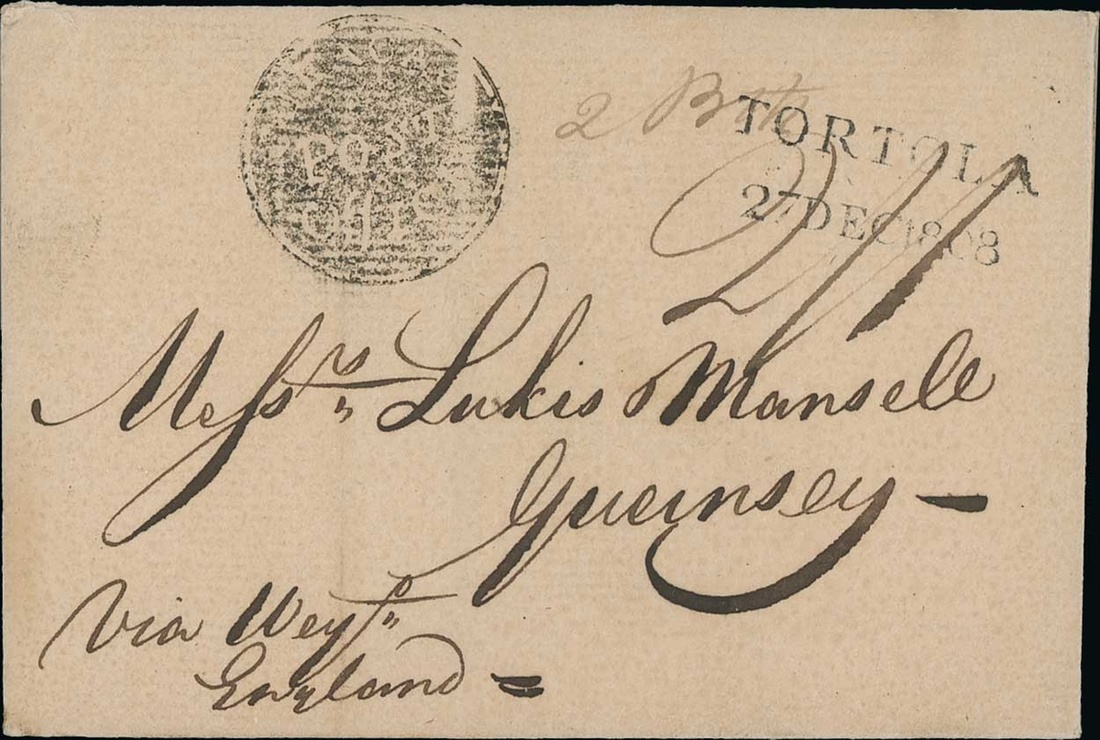 POST
2
TORTOLA
27 DEC 1808
2/1
Messrs Lukis Mansell
Guernsey
Via Weyth
England